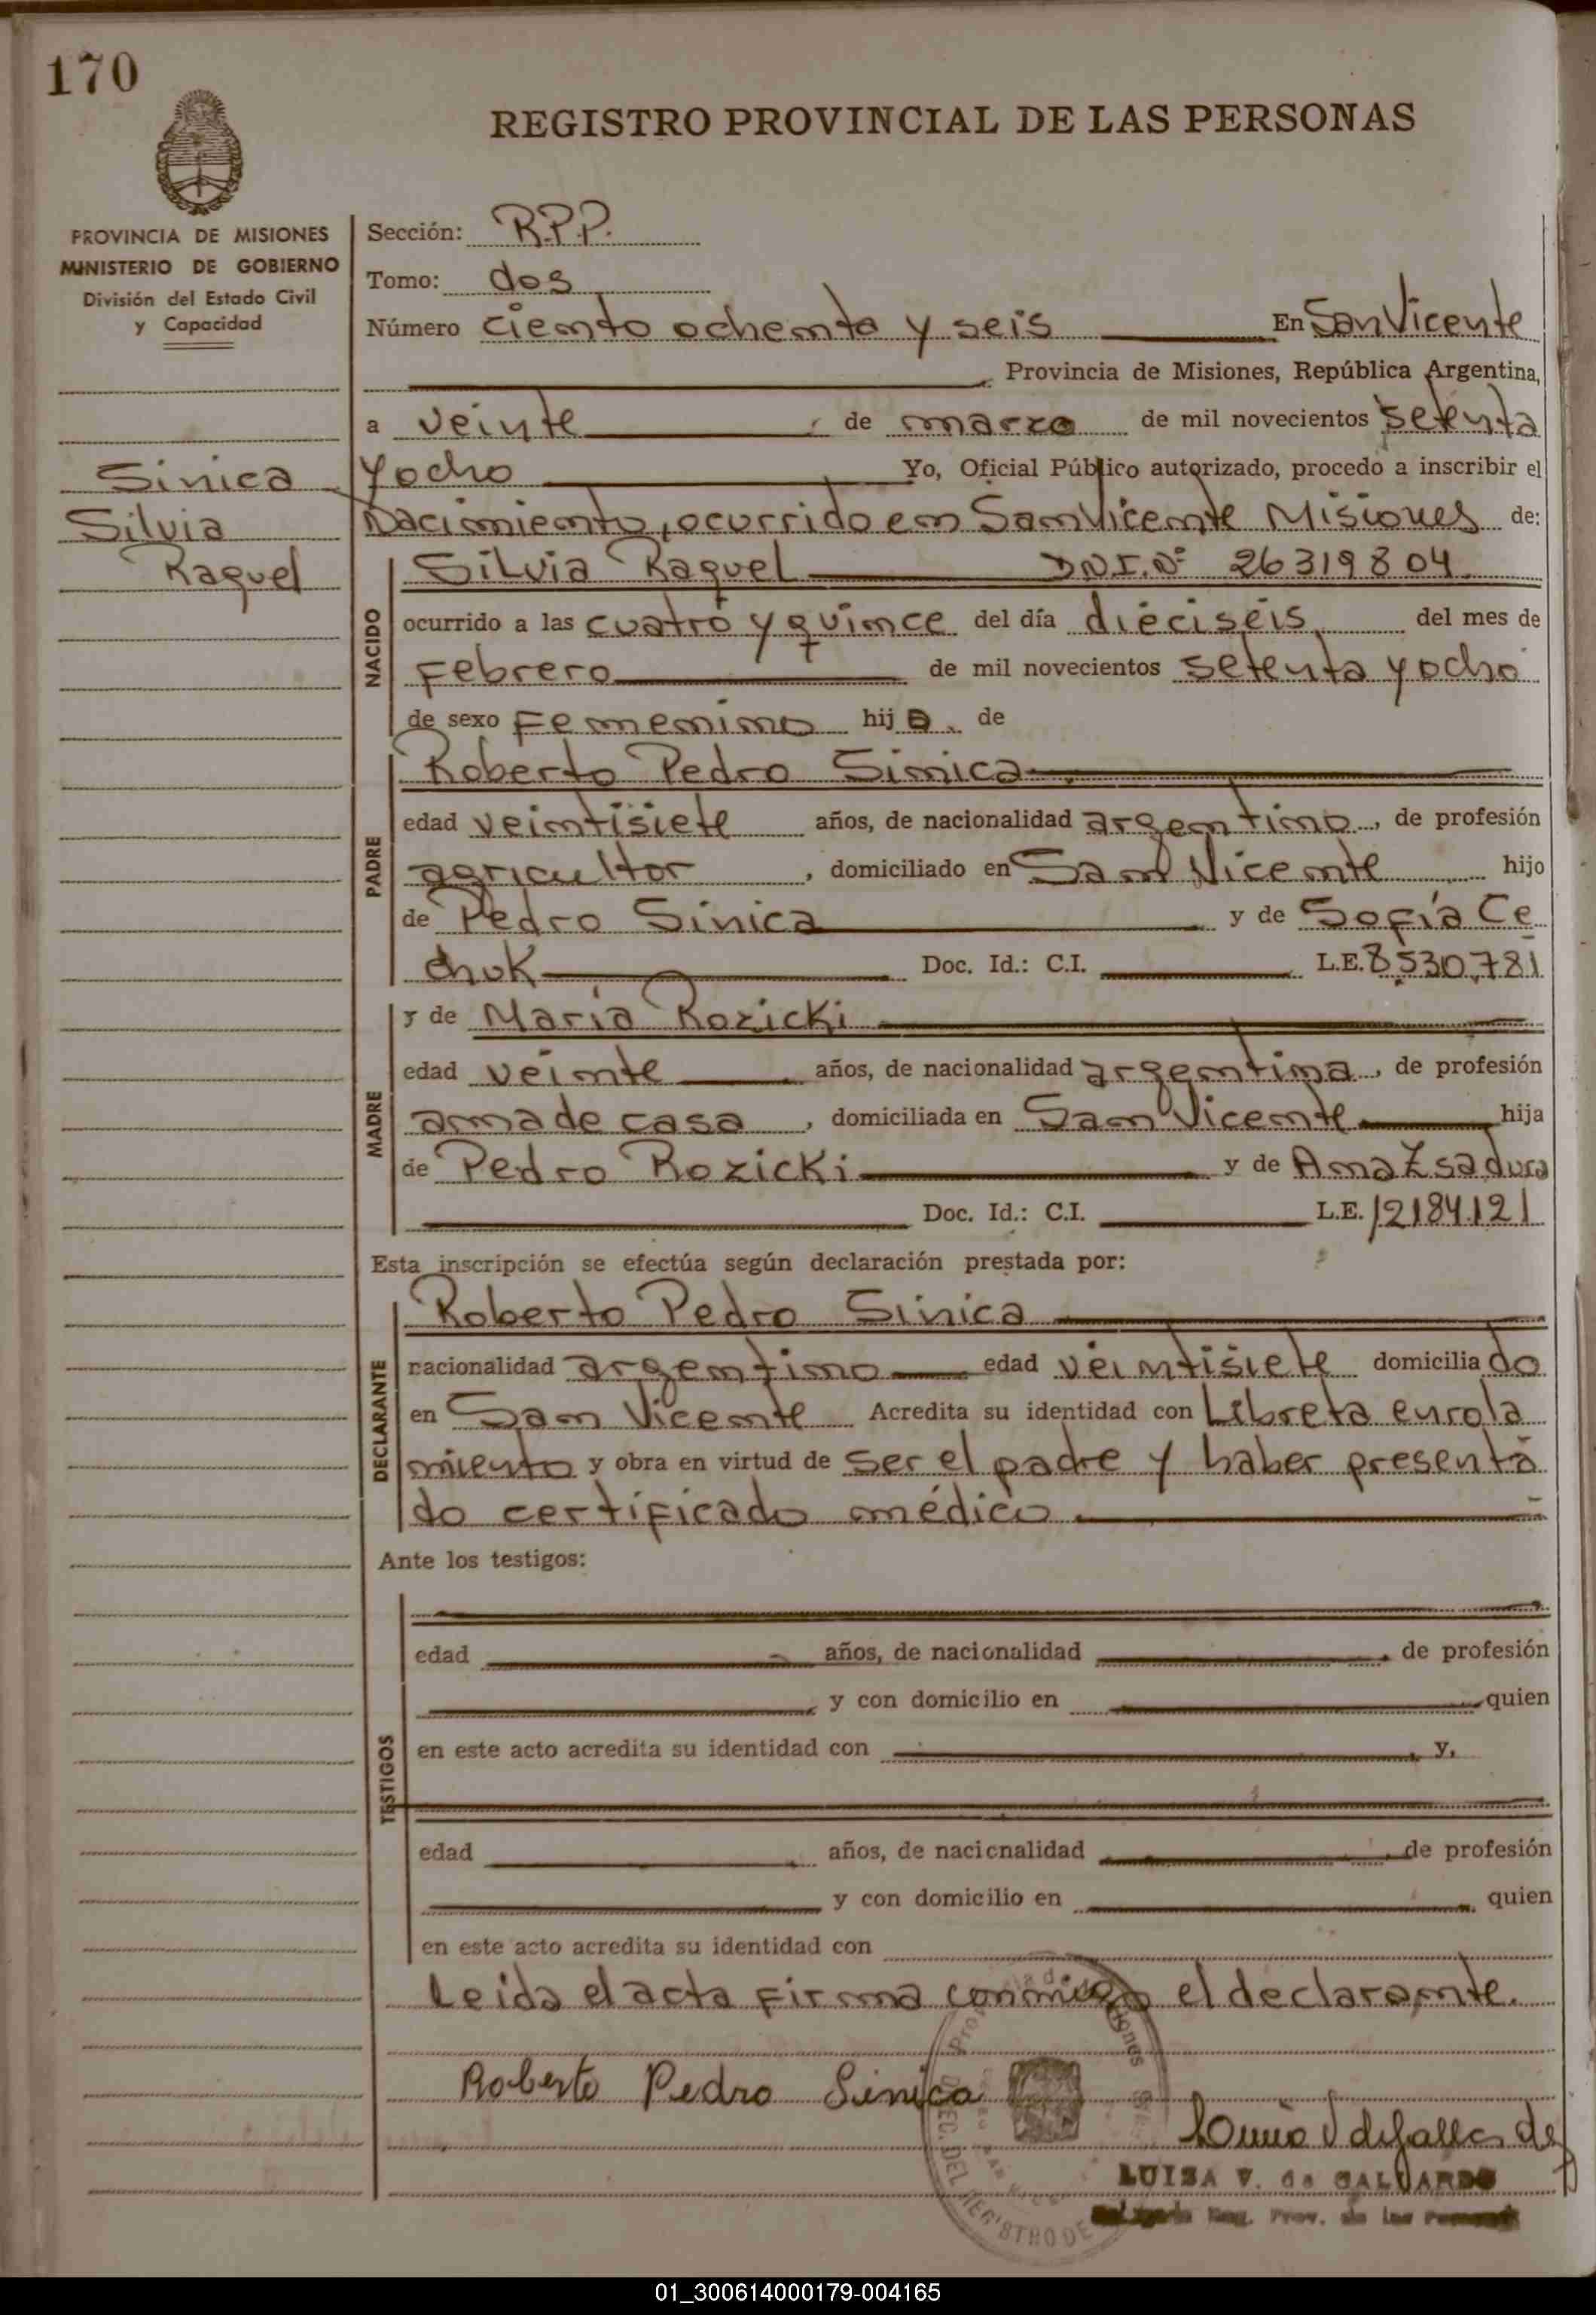 170
REGISTRO PROVINCIAL DE LAS PERSONAS
PROVINCIA DE MISIONES
MINISTERIO DE GOBIERNO
División del Estado Civil
y Capacidad
Sinica
Silvia
Raquel
Sección: R.P.P.
Tomo: dos
Número ciento ochenta y seis En San Vicente
Provincia de Misiones, República Argentina,
a veinte de marzo de mil novecientos setenta
y ocho Yo, Oficial Público autorizado, procedo a inscribir el
Nacimiento, ocurrido en San Vicente Misiones de:
NACIDO
Silvia Raquel D.N.I. Nº 26319804
ocurrido a las cuatro y quince del día dieciseis del mes de
Febrero de mil novecientos setenta y ocho
de sexo Femenino hija. de
PADRE
Roberto Pedro Sinica
edad veintisiete años, de nacionalidad argentino, de profesión
agricultor, domiciliado en San Vicente hijo
de Pedro Sinica y de Sofía Ce
chuk Doc. Id.: C.I. L.E. 8.530.781
MADRE
y de María Rozicki
edad veinte años, de nacionalidad argentina, de profesión
ama de casa, domiciliada en San Vicente hija
de Pedro Rozicki y de Ana Zsadura
Doc. Id.: C.I. L.E. 12184.121
Esta inscripción se efectúa según declaración prestada por:
DECLARANTE
Roberto Pedro Sinica
nacionalidad argentino edad veintisiete domiciliado
en San Vicente Acredita su identidad con Libreta enrola
miento y obra en virtud de ser el padre y haber presenta
do certificado médico
Ante los testigos:
TESTIGOS
edad años, de nacionalidad de profesión
y con domicilio en quien
en este acto acredita su identidad con y,
edad años, de nacionalidad de profesión
y con domicilio en quien
en este acto acredita su identidad con
Leida el acta firma conmigo el declarante.
Roberto Pedro Sinica
LUISA V. de GALLARDO
Reg. Prov. de las
01_300614000179-004165